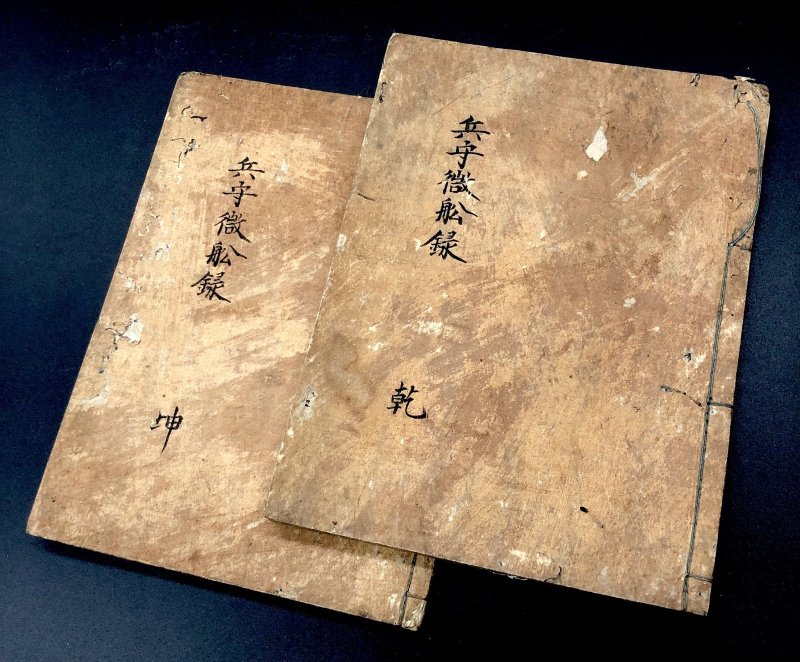 兵守微舩録
乾
兵守微舩録
坤